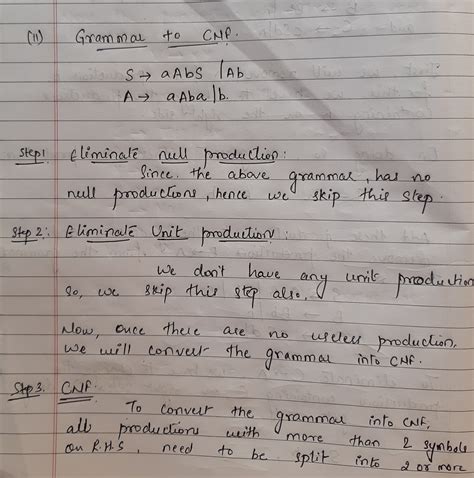 (11) Grammar to CNF.
S → aAbS | Ab
A → aAba | b.
Step1. Eliminate null production:
Since the above grammar, has no
null productions, hence we skip this step.
Step 2:. Eliminate Unit production:
We don't have any unit production
So, we skip this step also.
Now, once there are no useless production,
we will convert the grammar into CNF.
Step 3. CNF.
To convert the grammar into CNF,
all productions with more than 2 symbols
on R.H.S, need to be split into 2 or more